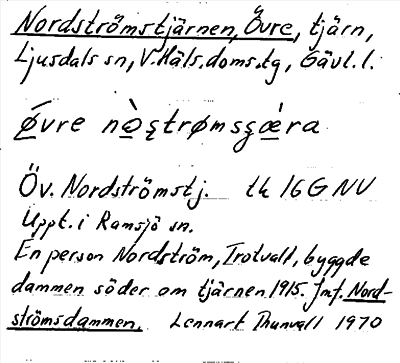 Nordströmstjärnen, Övre, tjärn,
Ljusdals sn, V. Häls. doms.tg, Gävl. l.
Øvre nò̠ştrømsşæ̀ra
Öv. Nordströmstj. tk 16G NV
Uppt. i Ramsjö sn.
En person Nordström, Trotvall, byggde
dammen söder om tjärnen 1915. Jmf. Nord-
strömsdammen. Lennart Thunvall 1970